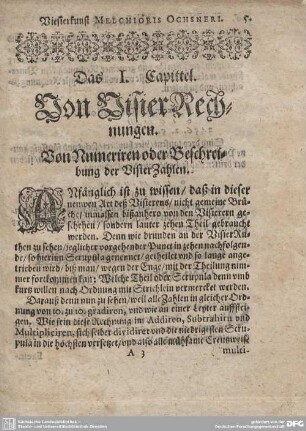 Viesierkunst MELCHIORIS OCHSNERI. 5.
Das I. Capittel.
Von Visier Rech-
nungen.
Von Numeriren oder Beschrei-
bung der Visier Zahlen.
ANfänglich ist zu wissen / daß in dieser
newen Art deß Visierens / nicht gemeine Brü-
che / inmassen bißanhero von den Visierern ge-
schehen / sondern lauter zehen Theil gebraucht
werden. Denn wie drunden an der Visier Ru-
then zu sehen / jeglicher vorgehender Punct in zehen nachfolgen-
de / so hierinn Scrupula genennet / getheilet vnd so lange ange-
trieben wird / biß man / wegen der Enge / mit der Theilung nim-
mer fortkommen kan: Welche Theil oder Scrupula denn vmb
kurtz willen nach Ordnung mit Strichlein vermercket werden.
Darauß denn nun zu sehen / weil alle Zahlen in gleicher Ord-
nung von 10. zu 10. gradiren, vnd wie an einer Leyter auffstei-
gen. Wie fein diese Rechnung im Addiren, Subtrahirn vnd
Multipliciren, sich selber dividiret vnd die niedrigsten Scru-
pula in die höchsten versetzet / vnd also alle mühsame Creutzweise
A 3 multi-